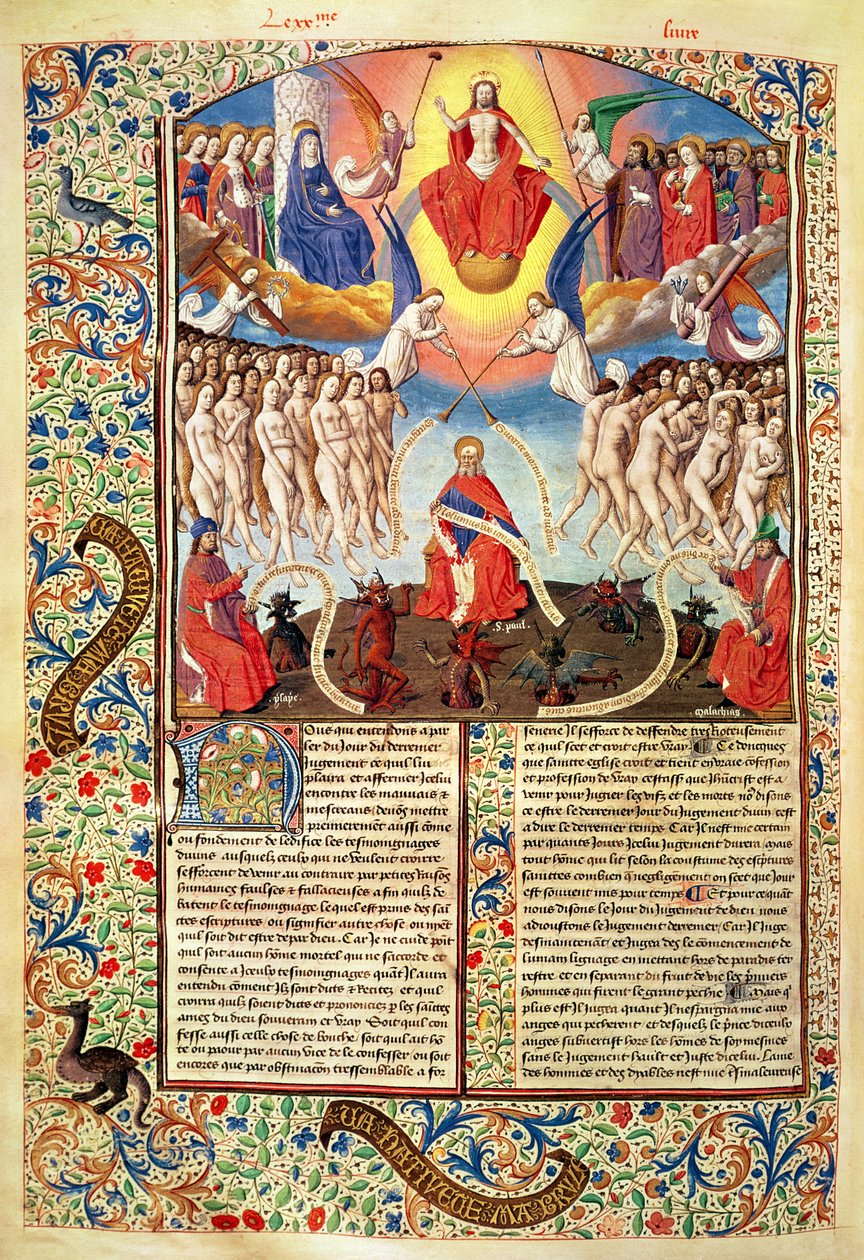 Le xx.me
liure
S. paul.
ysaye.
malachias.
Nous qui entendons a par
ler du Jour du derremer
Jugement ce quil lui
plaira et affermer Icelui
encontre les mauuais &
mescreans / deuõs mettre
premierement aussi cõme
ou fondement de ledifice les tesmoingnages
diuins ausquelz ceulx qui ne veulent croirre
sefforcent de venir au contraire par petites Raisõs
humaines faulses & fallacieuses a fin quilz de
batent le tesmoingnage lequel est prins des sai
tes escriptures ou signifier autre chose ou nyẽt
quil soit dit estre depar dieu. Car Je ne cuide poĩt
quil soit aucun hõme mortel qui ne saccorde et
consente a Iceulx tesmoingnages quãt Il aura
entendu cõment Ilz sont dits & Recitez, et quil
croirra quilz soient dicts et prononciez p̱ les saĩtes
ames du dieu souuerain et vray Soit quil con
fesse aussi celle chose de bouche / soit quil ait hõ
te ou paour par aucun vice de le confesser / ou soit
encores que par obstinacõn tressemblable a for
senerie Il sefforce de deffendre treshoteusement
ce quil scet et croit estre vray ¶ Ce doncques
que saincte eglise croit et tient en vraie cõfession
et profession de vray
venir pour Jugier les vifz et les mortz no9 disons
ce estre le derremer Jour du Jugement diuin cest
a dire le derremer temps. Car Il nest mie certain
par quants Jours Icelui Jugement durera / mais
tout hõme qui lit selon la coustume des escptures
sainctes combien q̃ negligemẽt on scet que Jour
est souuent mis pour temps ¶ Et pour ce quãt
nous disons le Jour du Jugement de dieu nous
adioustons le Jugement derremer / Car Il Juge
des maintenãt et Jugea des le cõmencement de
lumain lignage en mettant hors de paradis ter
restre et en separant du fruit de vie les p̃miers
hommes qui firent le grant pechie ¶ Mais q̃
plus est Il Jugea quant Il nespargna mie aux
anges qui pecherent et desquelz le p̃nce diceulx
anges subuertist hors les hõmes de soy mesmes
sans le Jugement hault et Juste dicelui. Lame
des hommes et des dyables nest mie
VA HATIVETE MA BRVZE
VA HATIVETE MA BRVZE